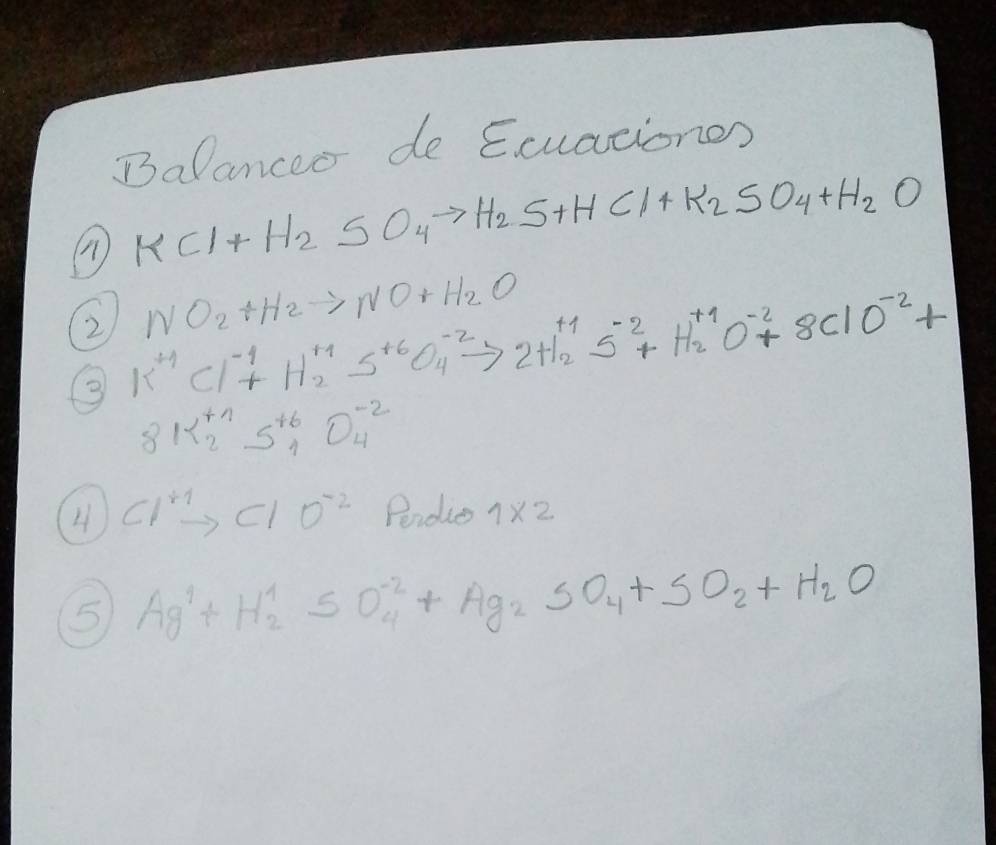 Balanceo de Ecuaciones
① KCl + H₂ SO₄ → H₂S + HCl + K₂SO₄ + H₂O
② NO₂ + H₂ → NO + H₂O
③ K⁺¹ Cl⁻¹ + H₂⁺¹ S⁺⁶ O₄⁻² → 2H₂⁺¹ S⁻² + H₂⁺¹ O⁻² + 8ClO⁻² +
8K₂⁺¹ S₁⁺⁶ O₄⁻²
④ Cl⁺¹ → Cl O⁻² Perdio 1x2
⑤ Ag¹ + H₂¹ SO₄⁻² + Ag₂ SO₄ + SO₂ + H₂O